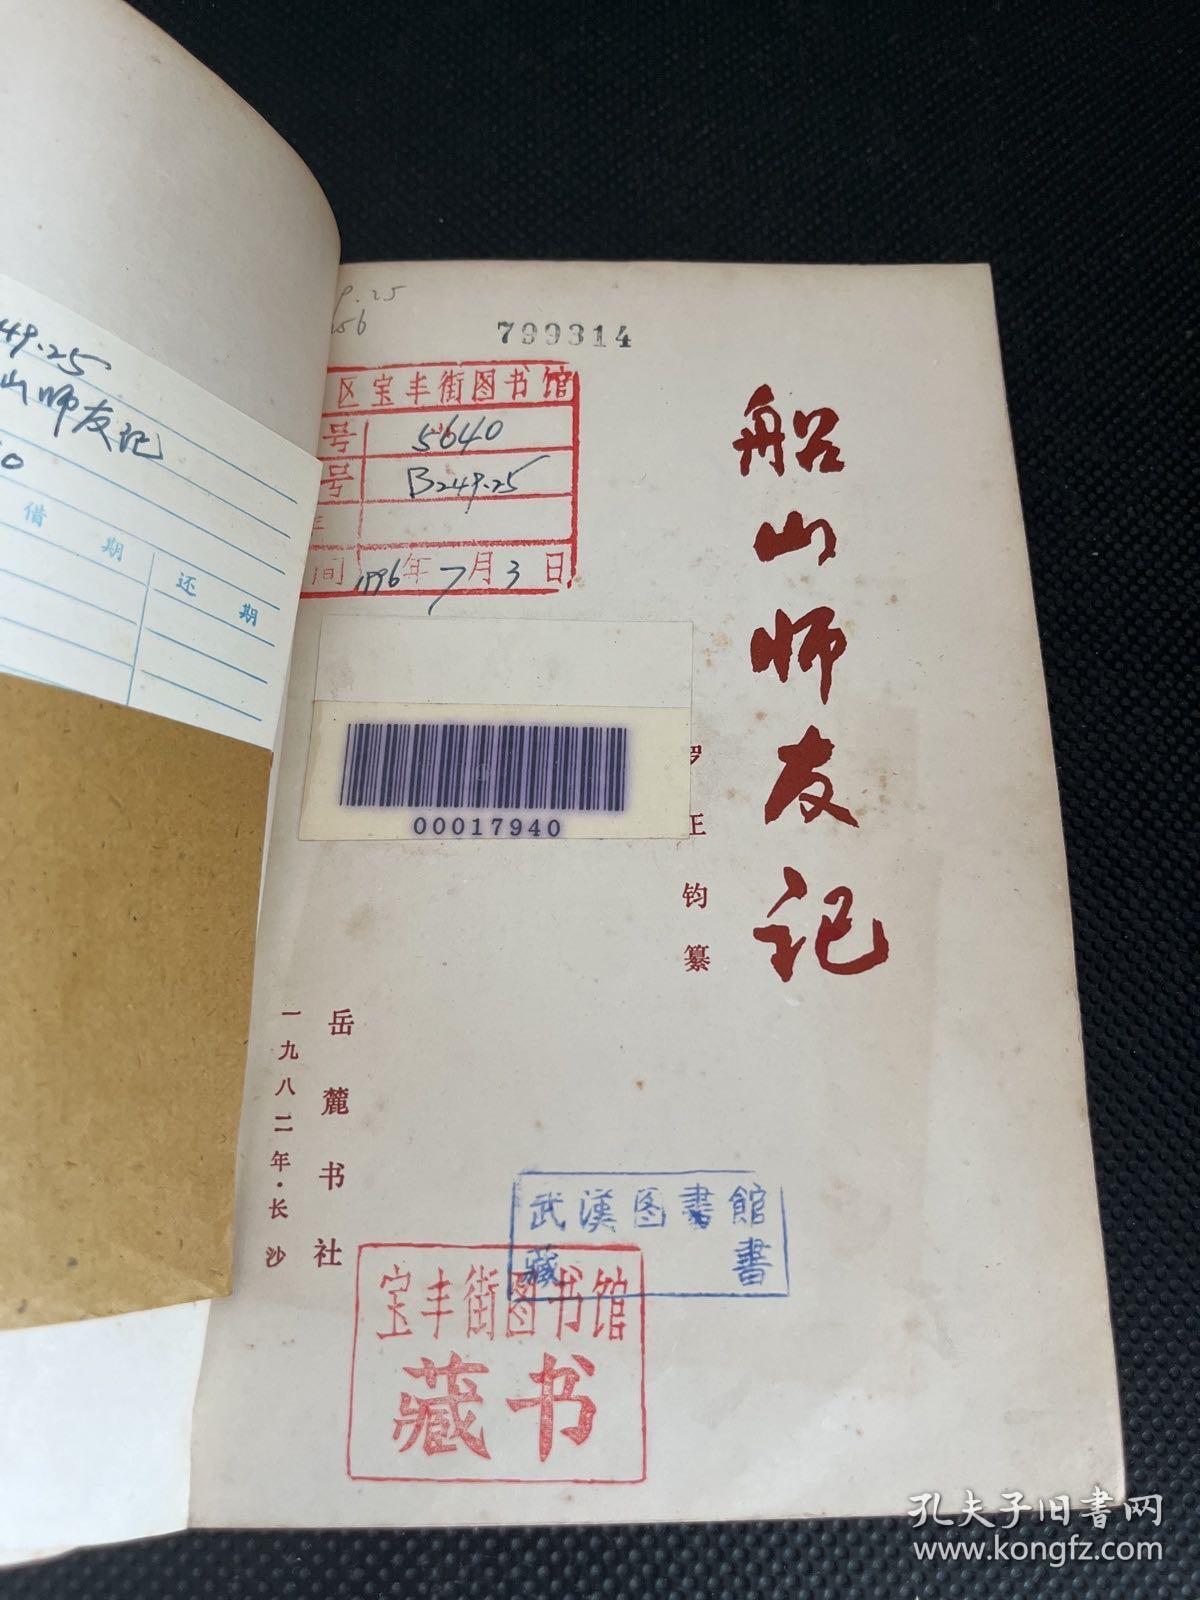 49.25
山师友记
借期
还期
9.25
56
799314
区宝丰街图书馆
号 5640
号 B249.25
间 1996年7月3日
船山师友记
罗正钧纂
00017940
岳麓书社
一九八二年·长沙
武漢图書館
藏書
宝丰街图书馆
藏书
孔夫子旧书网
www.kongfz.com